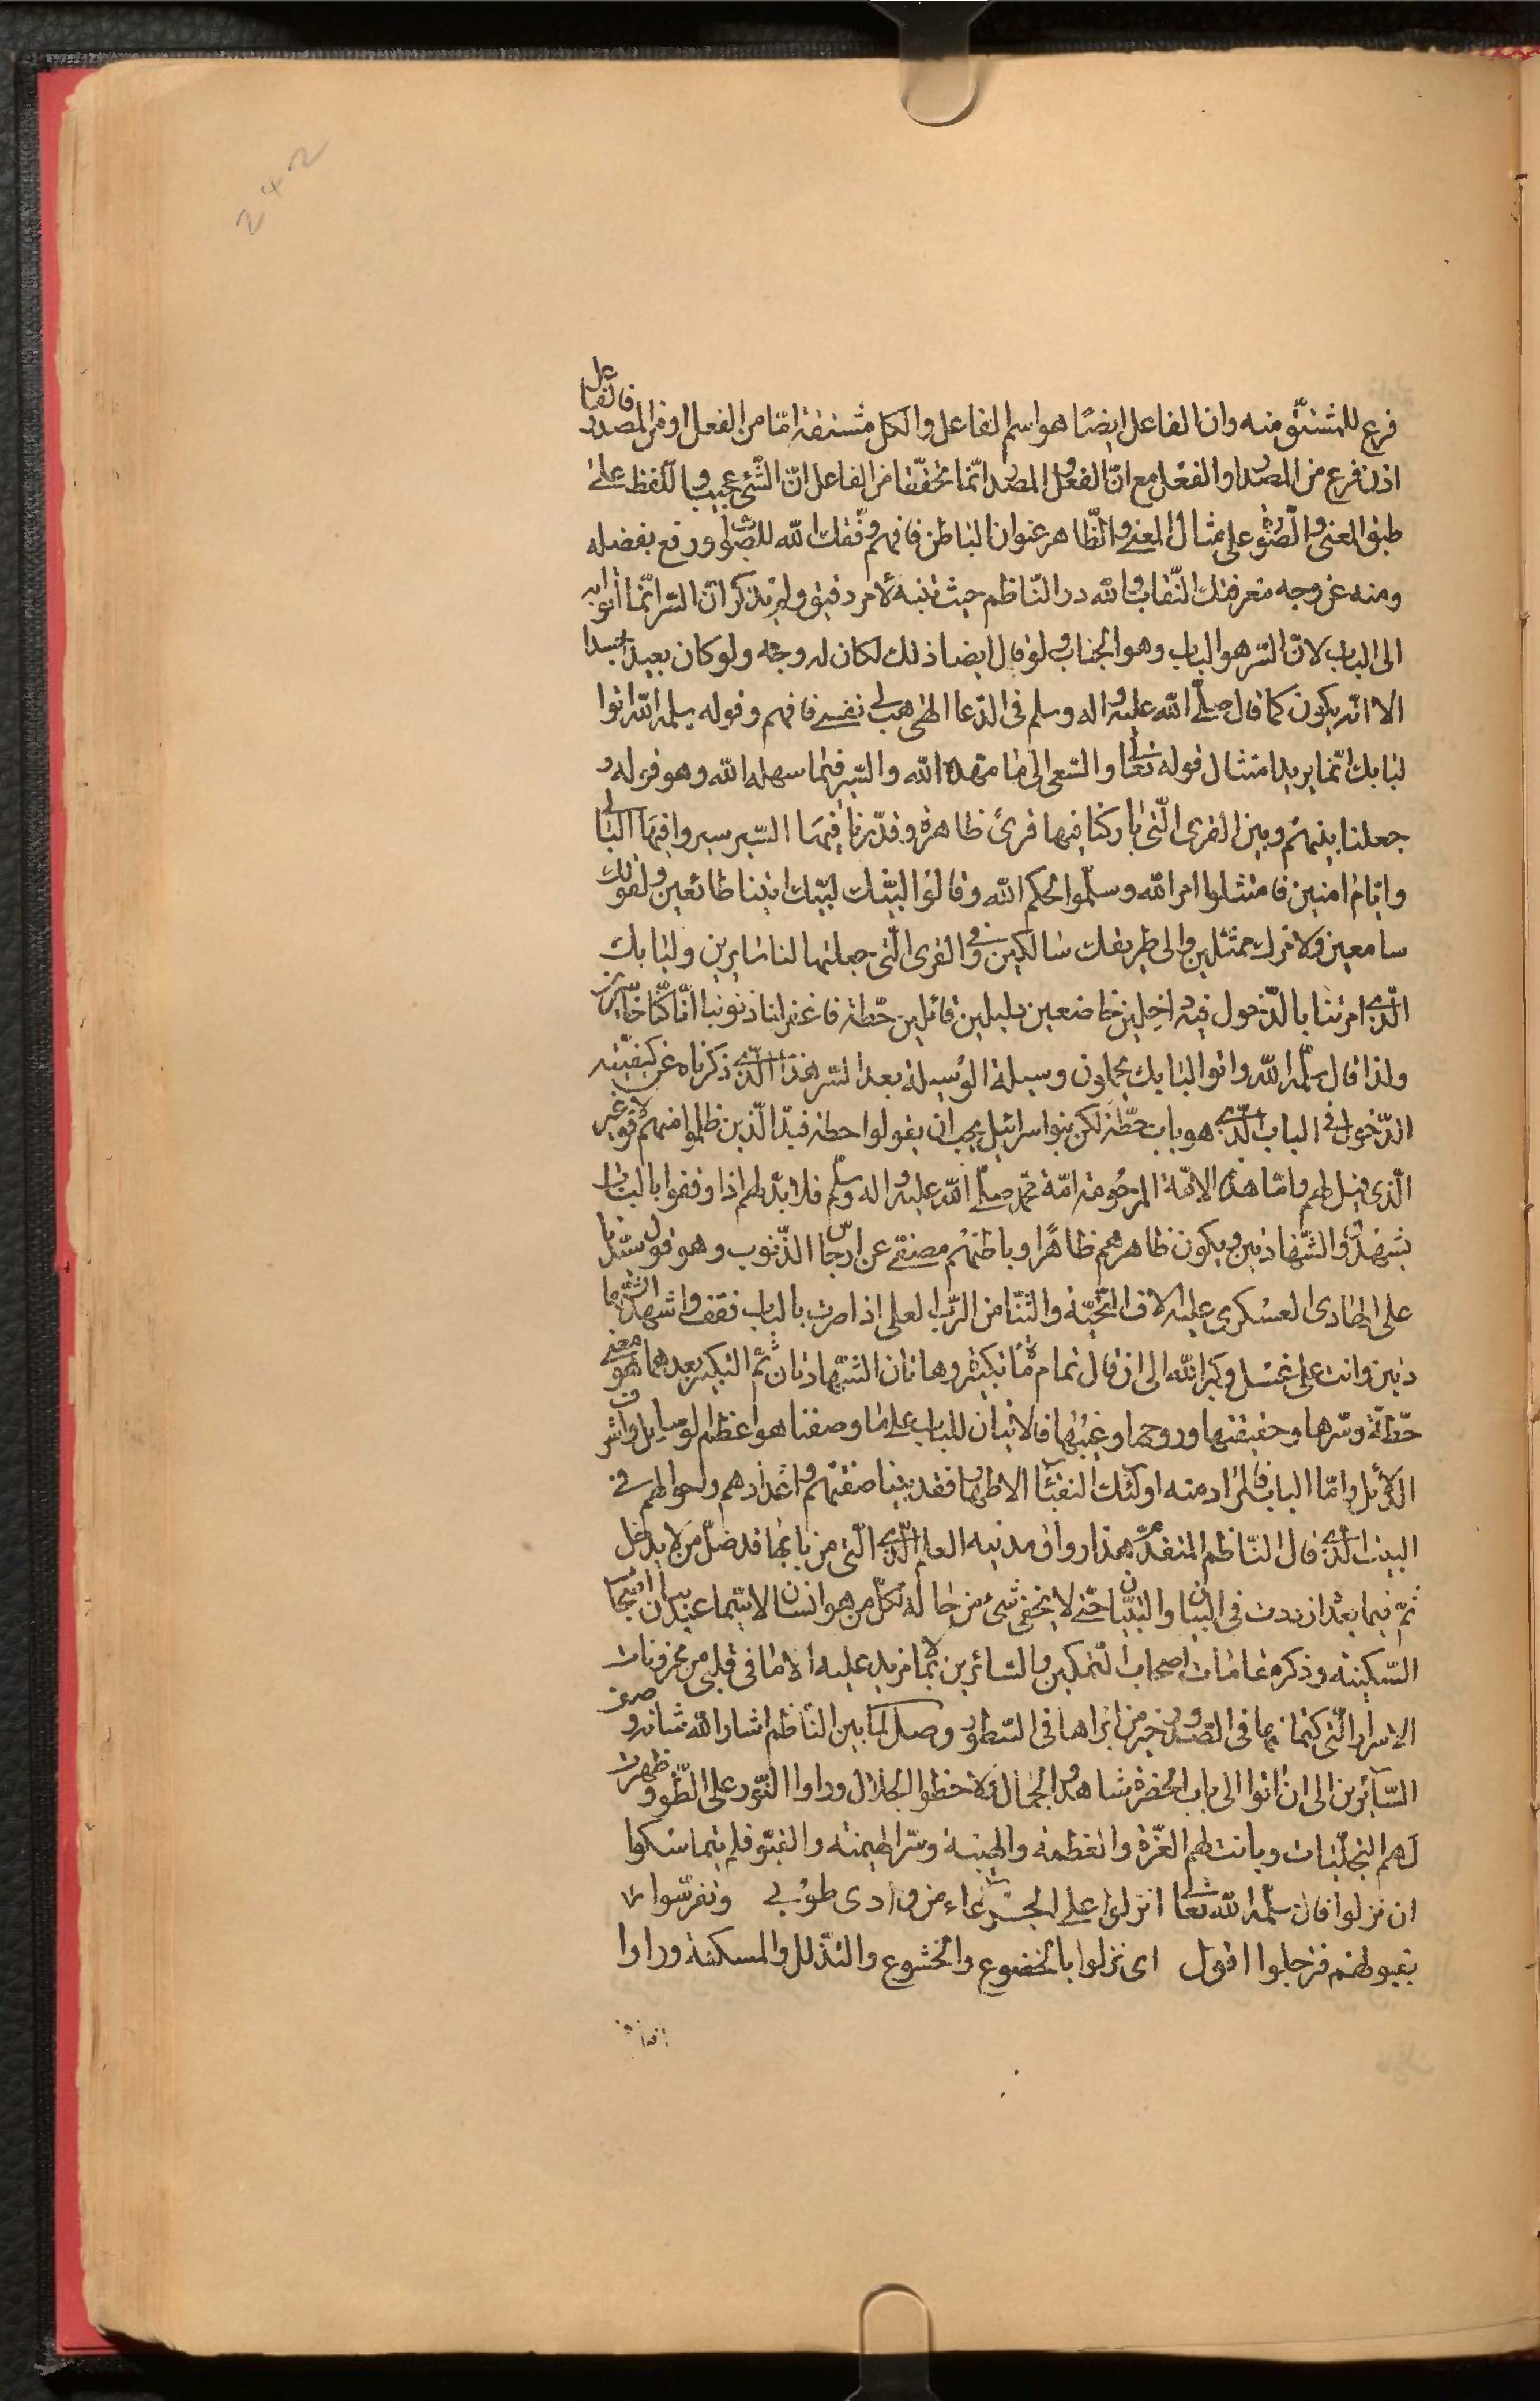 فرع للمشتق منه وان الفاعل ايضًا هو اسم الفاعل والكل مشتقة امّا من الفعل او من المصدر فالفاعل
اذن فرع من المصدر او الفعل مع انّ الفعل والمصدر انّما تحقّقا من الفاعل انّ الشّئ عجيب واللّفظ على
طبق المعنى والصّورة على مثال المعنى والظّاهر عنوان الباطن فافهم وفّقك الله للصّواب ورفع بفضله
ومنه عن وجه معرفتك النّقاب ولله در النّاظم حيث تنبه لأمر دقيق ولم يذكر انّ السّر انّما أتوا به
الى الباب لانّ السّر هو الباب وهو الجناب ولو قال ايضا ذلك لكان له وجه ولو كان بعيدا جدا
الا انّه يكون كما قال صلّى الله عليه واله وسلم فى الدّعا الهى هب لى نفسى فافهم وقوله سلمه الله اتوا
لبابك انّما يريد امتثال قوله تعالى والسّعى الى ما مهده الله والسّير فيما سهله الله وهو قوله و
جعلنا بينهم وبين القرى الّتى باركنا فيها قرى ظاهرة وقدّرنا فيها السّير سيروا فيها ليالى
وايّام امنين فامتثلوا امر الله وسلّموا لحكم الله وقالوا لبّيك لبّيك اتينا طائعين ولقولك
سامعين ولامرك ممتثلين والى طريقك سالكين وفى القرى الّتى جعلتها لنا سايرين ولبابك
الّذى امرتنا بالدّخول فيه داخلين خاضعين ذليلين قائلين حطّة فاغفر لنا ذنوبنا انّا كنّا خاسرين
ولذا قال سلّمه الله واتوا لبابك يجعلون وسيلة الوسيلة بعد السّر هذا الّذى ذكرناه عن كيفيّته
الدّخول فى الباب الّذى هو باب حطّة لكن بنوا اسرائيل يجب ان يقولوا حطة فبدّل الّذين ظلموا منهم قولا غير
الّذى قيل لهم وامّا هذه الامّة المرحومة امّة محمّد صلّى الله عليه واله وسلّم فلا بدّ لهم اذا وقفوا بالباب ان
يشهدوا الشّهادتين ويكون ظاهرهم طاهرًا وباطنهم مصفّى عن ارجاس الذّنوب وهو قول سيّدنا
على الهادى العسكرى عليه الاف التّحيّة والثّنا من الرّب العلى اذا صرت بالباب فقف واشهد الشّها
دتين وانت على غسل وكبر الله الى ان قال تمام مائة تكبيرة وهاتان الشّهادتان ثمّ التّكبير بعدهما هو معنى
حطّة وسّرها وحقيقتها وروحها وغيبها فالاتيان للباب على ما وصفنا هو اعظم الوسايل واشرف
الدّلائل وامّا الباب فالمراد منه اولئك النقبآء الاطهار فقد بينا صفتهم واعدادهم واحوالهم فى
البيت الّذى قال النّاظم المتقدّم هذا رواق مدنيه العلم الّذى الّتى من بابها قد ضلّ من لا يدخل
ثمّ فيما بعد ازددت فى البيان والتبيان حتى لا يخفى شئ من حاله لكلّ من هو انسان لا سيّما عند ارباب
السّكينة وذكر مقامات اصحاب التّمكين والسّائرين بما لا مزيد عليه الا ما فى قلبى من مخزونات
الاسرار الّتى كتمانها فى الصّدور خير من ابرازها فى السّطور وصل لمّا بين النّاظم اشار الله شانه وصف
السّآئرين الى ان اتوا الى باب الحضرة وشاهدوا الجمال ولاحظوا الجلال وراوا النّور على الطّور وظهرت
لهم التجلّيات وبانت لهم العّزة والعظمة والهيبة وسّر الهيمنة والقيّو
ان نزلوا قال سلّمه الله تعالى انزلوا على الجرعاء من وادى طوى وتفرّسوا
بقبولهم فترجلوا اقول اى نزلوا بالخضوع والخشوع والتّذلل والمسكنة وراوا